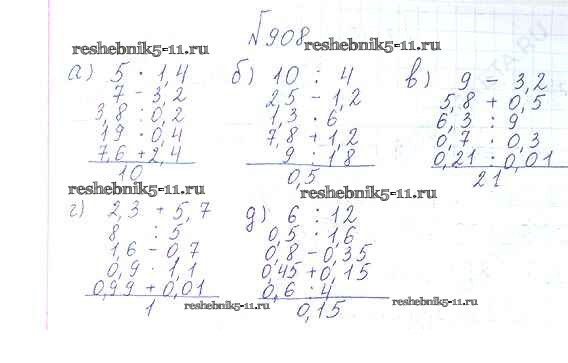 №908
reshebnik5-11.ru
reshebnik5-11.ru
а) 5 · 1,4
7 - 3,2
3,8 : 0,2
19 · 0,4
7,6 + 2,4
10
б) 10 : 4
2,5 - 1,2
1,3 · 6
7,8 + 1,2
9 : 18
0,5
в) 9 - 3,2
5,8 + 0,5
6,3 : 9
0,7 · 0,3
0,21 : 0,01
21
reshebnik5-11.ru
reshebnik5-11.ru
г) 2,3 + 5,7
8 : 5
1,6 - 0,7
0,9 · 1,1
0,99 + 0,01
1
reshebnik5-11.ru
д) 6 : 12
0,5 · 1,6
0,8 - 0,35
0,45 + 0,15
0,6 : 4
0,15
reshebnik5-11.ru